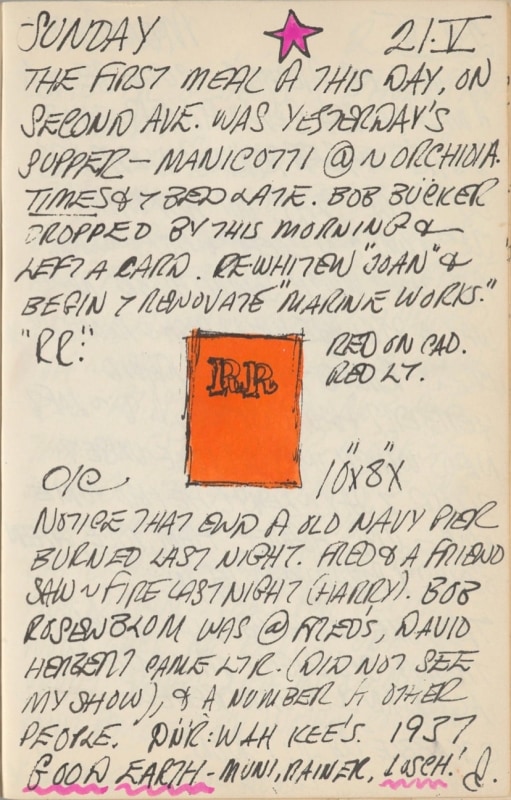 SUNDAY 21·V
THE FIRST MEAL A THIS DAY, ON
SECOND AVE. WAS YESTERDAY'S
SUPPER — MANICOTTI @ N ORCHIDIA.
TIMES & 7 BED LATE. BOB BUCKER
DROPPED BY THIS MORNING &
LEFT A CARD. REWHITEN "JOAN" &
BEGIN 7 RENOVATE "MARINE WORKS."
"RR."
RR
RED ON CAD.
RED LT.
O/C 10"X8"X
NOTICE THAT END A OLD NAVY PIER
BURNED LAST NIGHT. FRED & A FRIEND
SAW ~ FIRE LAST NIGHT (HARRY). BOB
ROSENBLOM WAS @ FRED'S, DAVID
HERBERT CAME LTR. (DID NOT SEE
MY SHOW), & A NUMBER A OTHER
PEOPLE. DNR: WAH KEE'S. 1937
GOOD EARTH - MUNI, RAINER, LOSCH.